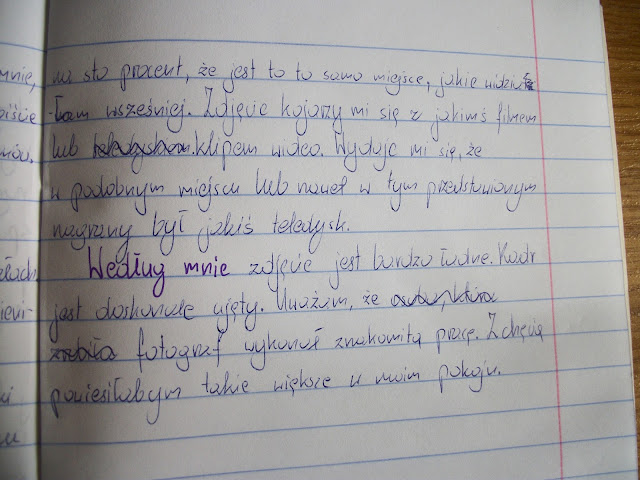 mnie, na sto procent, że jest to to samo miejsce, jakie widzia
łam wsześniej. Zdjęcie kojarzy mi się z jakimś filmem
lub teledyskiem klipem wideo. Wydaje mi się, że
w podobnym miejscu lub nawet w tym przedstawionym
nagrany był jakiś teledysk.
Według mnie zdjęcie jest bardzo ładne. Kadr
jest doskonale ujęty. Uważam, że autor, która
zrobiła fotograf wykonał znakomitą pracę. Z chęcią
powiesiłabym takie większe w moim pokoju.